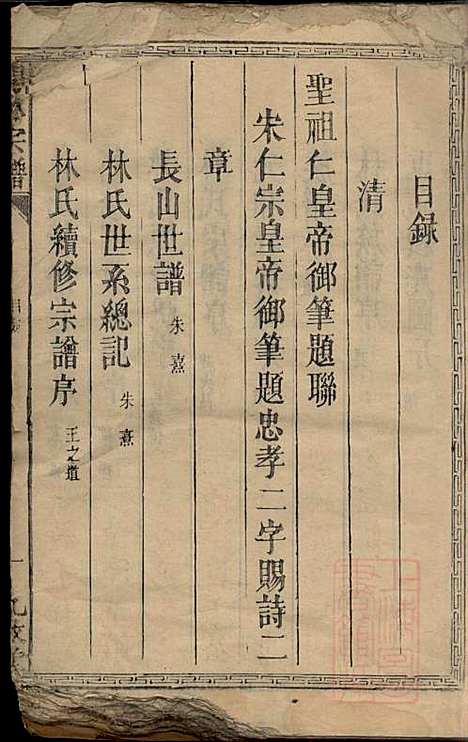 目錄
清
聖祖仁皇帝御筆題聯
宋仁宗皇帝御筆題忠孝二字賜詩二
章
長山世譜 朱熹
林氏世系總記 朱熹
林氏續修宗譜序 王之道
宗譜
目錄
一